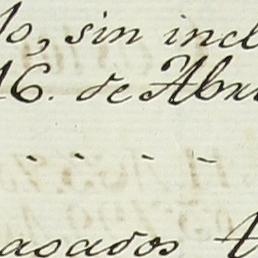 lo, sin incl
16. de Abri
- - - -
asados